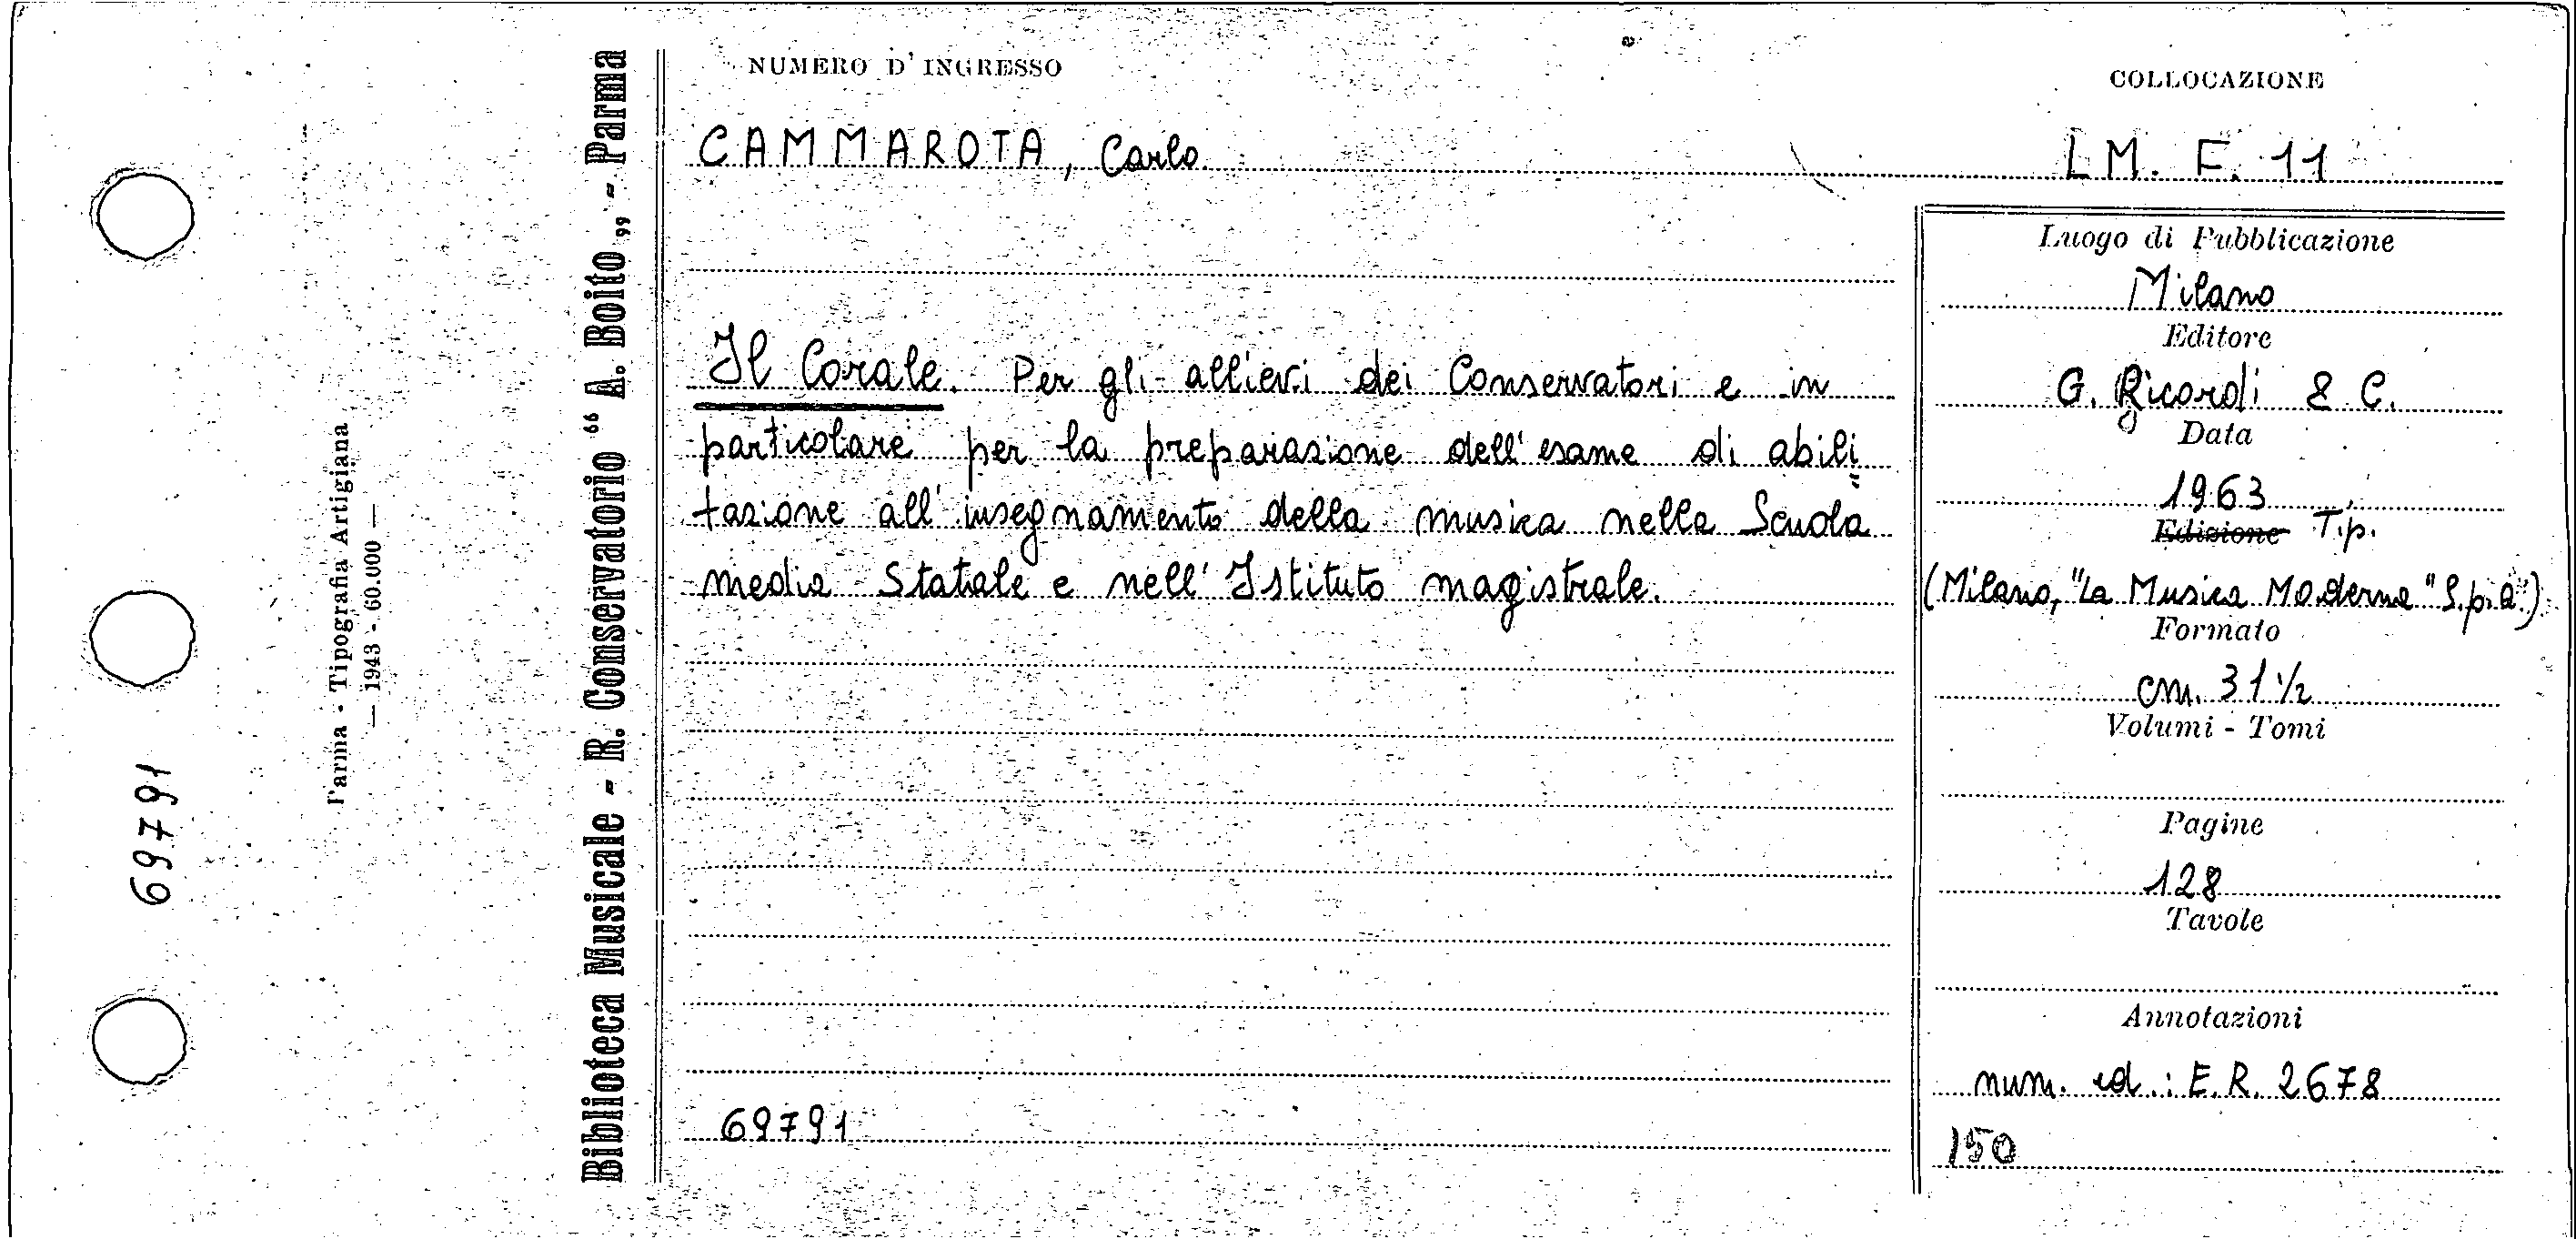 NUMERO D'INGRESSO
COLLOCAZIONE
CAMMAROTA, Carlo
LM. F. 11
Il Corale. Per gli allievi dei Conservatori e in
particolare per la preparazione dell'esame di abili=
tazione all'insegnamento della musica nella Scuola
media Statale e nell'Istituto magistrale.
69791
Luogo di Pubblicazione
Milano
Editore
G. Ricordi & C.
Data
1963
Edizione Tip.
(Milano, "La Musica Moderna" S.p.a.)
Formato
cm. 31 1/2
Volumi - Tomi
Pagine
128
Tavole
Annotazioni
num. ed.: E.R. 2678
150
Biblioteca Musicale - R. Conservatorio “ A. Boito „ - Parma
Parma - Tipografia Artigiana
— 1943 - 60.000 —
69791